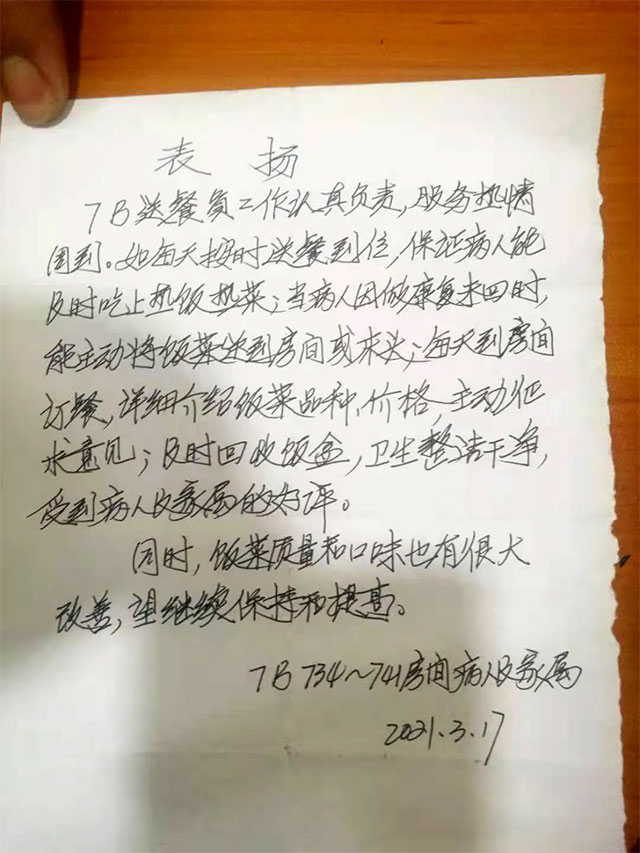 表 扬
7B送餐员工作认真负责,服务热情
周到。如每天按时送餐到位,保证病人能
及时吃上热饭热菜;当病人因做康复未回时,
能主动将饭菜送到房间或床头;每天到房间
订餐,详细介绍饭菜品种、价格,主动征
求意见;及时回收饭盒,卫生整洁干净,
受到病人及家属的好评。
同时,饭菜质量和口味也有很大
改善,望继续保持和提高。
7B 734~741房间病人及家属
2021.3.17